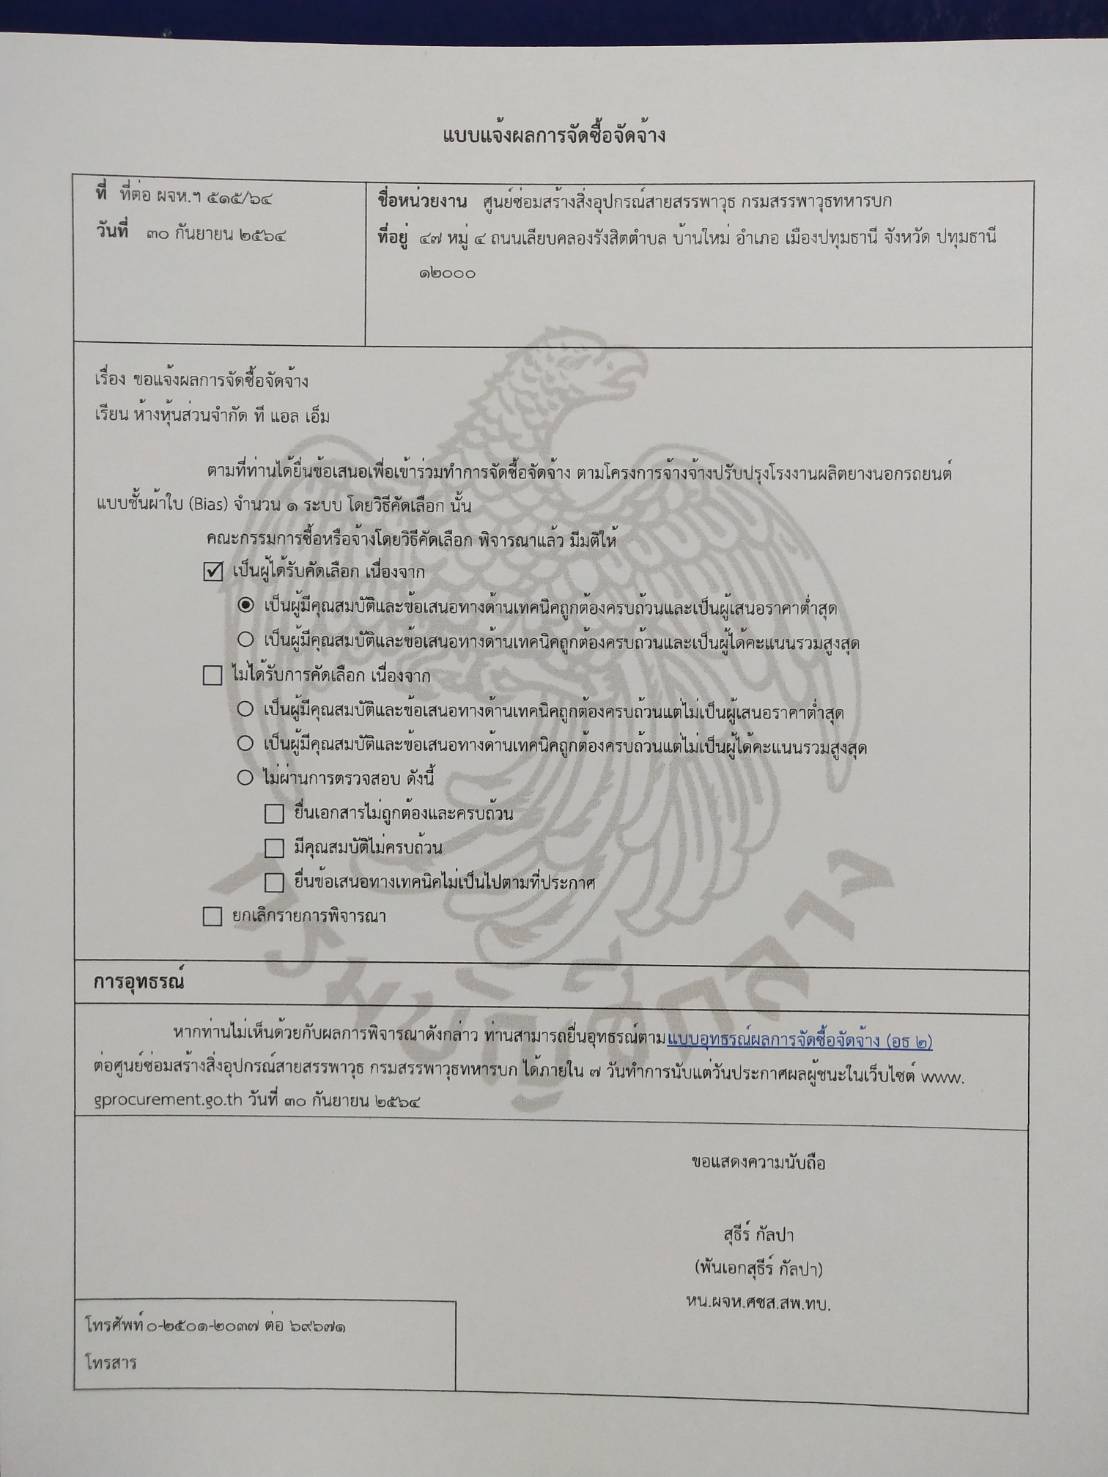 แบบแจ้งผลการจัดซื้อจัดจ้าง
ที่ ที่ต่อ ผจห.ฯ ๕๑๕/๖๔
วันที่ ๓๐ กันยายน ๒๕๖๔
ชื่อหน่วยงาน ศูนย์ซ่อมสร้างสิ่งอุปกรณ์สายสรรพาวุธ กรมสรรพาวุธทหารบก
ที่อยู่ ๔๗ หมู่ ๔ ถนนเลียบคลองรังสิตตำบล บ้านใหม่ อำเภอ เมืองปทุมธานี จังหวัด ปทุมธานี
๑๒๐๐๐
เรื่อง ขอแจ้งผลการจัดซื้อจัดจ้าง
เรียน ห้างหุ้นส่วนจำกัด ที แอล เอ็ม
ตามที่ท่านได้ยื่นข้อเสนอเพื่อเข้าร่วมทำการจัดซื้อจัดจ้าง ตามโครงการจ้างจ้างปรับปรุงโรงงานผลิตยางนอกรถยนต์
แบบชั้นผ้าใบ (Bias) จำนวน ๑ ระบบ โดยวิธีคัดเลือก นั้น
คณะกรรมการซื้อหรือจ้างโดยวิธีคัดเลือก พิจารณาแล้ว มีมติให้
เป็นผู้ได้รับคัดเลือก เนื่องจาก
เป็นผู้มีคุณสมบัติและข้อเสนอทางด้านเทคนิคถูกต้องครบถ้วนและเป็นผู้เสนอราคาต่ำสุด
เป็นผู้มีคุณสมบัติและข้อเสนอทางด้านเทคนิคถูกต้องครบถ้วนและเป็นผู้ได้คะแนนรวมสูงสุด
ไม่ได้รับการคัดเลือก เนื่องจาก
เป็นผู้มีคุณสมบัติและข้อเสนอทางด้านเทคนิคถูกต้องครบถ้วนแต่ไม่เป็นผู้เสนอราคาต่ำสุด
เป็นผู้มีคุณสมบัติและข้อเสนอทางด้านเทคนิคถูกต้องครบถ้วนแต่ไม่เป็นผู้ได้คะแนนรวมสูงสุด
ไม่ผ่านการตรวจสอบ ดังนี้
ยื่นเอกสารไม่ถูกต้องและครบถ้วน
มีคุณสมบัติไม่ครบถ้วน
ยื่นข้อเสนอทางเทคนิคไม่เป็นไปตามที่ประกาศ
ยกเลิกรายการพิจารณา
กรมบัญชีกลาง
การอุทธรณ์
หากท่านไม่เห็นด้วยกับผลการพิจารณาดังกล่าว ท่านสามารถยื่นอุทธรณ์ตามแบบอุทธรณ์ผลการจัดซื้อจัดจ้าง (อธ ๒)
ต่อศูนย์ซ่อมสร้างสิ่งอุปกรณ์สายสรรพาวุธ กรมสรรพาวุธทหารบก ได้ภายใน ๗ วันทำการนับแต่วันประกาศผลผู้ชนะในเว็บไซต์ www.
gprocurement.go.th วันที่ ๓๐ กันยายน ๒๕๖๔
ขอแสดงความนับถือ
สุธีร์ กัลปา
(พันเอกสุธีร์ กัลปา)
หน.ผจห.ศซส.สพ.ทบ.
โทรศัพท์ ๐-๒๕๐๑-๒๐๓๗ ต่อ ๖๙๖๗๑
โทรสาร